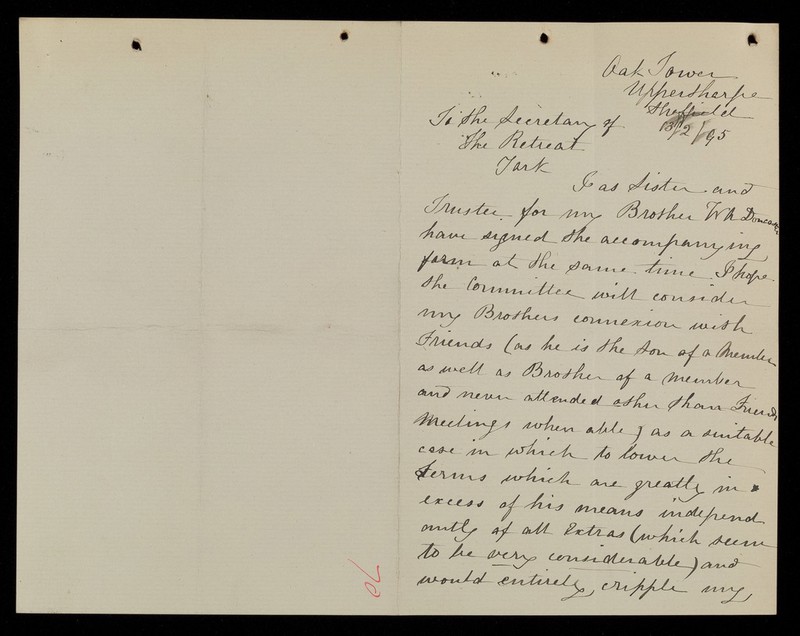 Oak Tower
Upperthorpe
Sheffield
13/2/95
To the Secretary of
The Retreat
York
I as Sister and
Trustee for my Brother Wm Doncaster
have signed the accompanying
form at the same time I hope
the Committee will consider
my Brothers connexion with
Friends (as he is the son of a Member
as well as Brother of a member
and never attended other than Friends
Meetings when able) as a suitable
case in which to lower the
terms which are greatly in
excess of his means independ
antly of all Extras (which seem
to be very considerable) and
would entirely, cripple my,